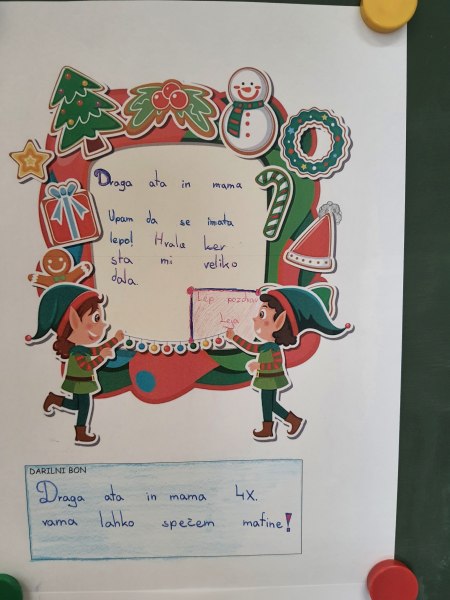 Draga ata in mama
Upam da se imata
lepo! Hvala ker
sta mi veliko
dala.
Lep pozdrav
Leja
DARILNI BON
Draga ata in mama 4x.
vama lahko spečem mafine!